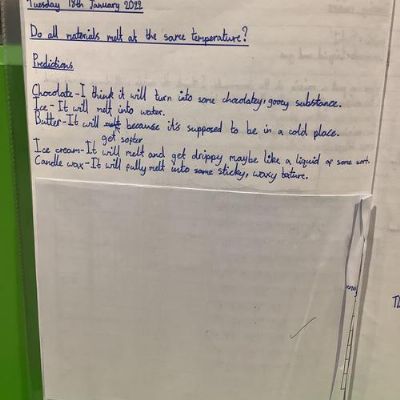 Tuesday 18th January 2022
Do all materials melt at the same temperature?
Predictions
Chocolate-I think it will turn into some chocolatey, gooey substance.
Ice-It will melt into water.
Butter-It will get softer because it's supposed to be in a cold place.
Ice cream-It will melt and get drippy maybe like a liquid of some sort.
Candle wax-It will fully melt into some sticky, waxy texture.